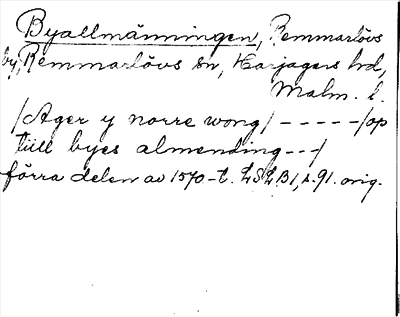 Byallmänningen, Remmarlövs
by, Remmarlövs sn, Harjagers hd,
Malm. l.
/Ager y norre wong/ - - - - - /op
till byes almending - - -/
förra delen av 1570-t. LSLB1, s. 91. orig.